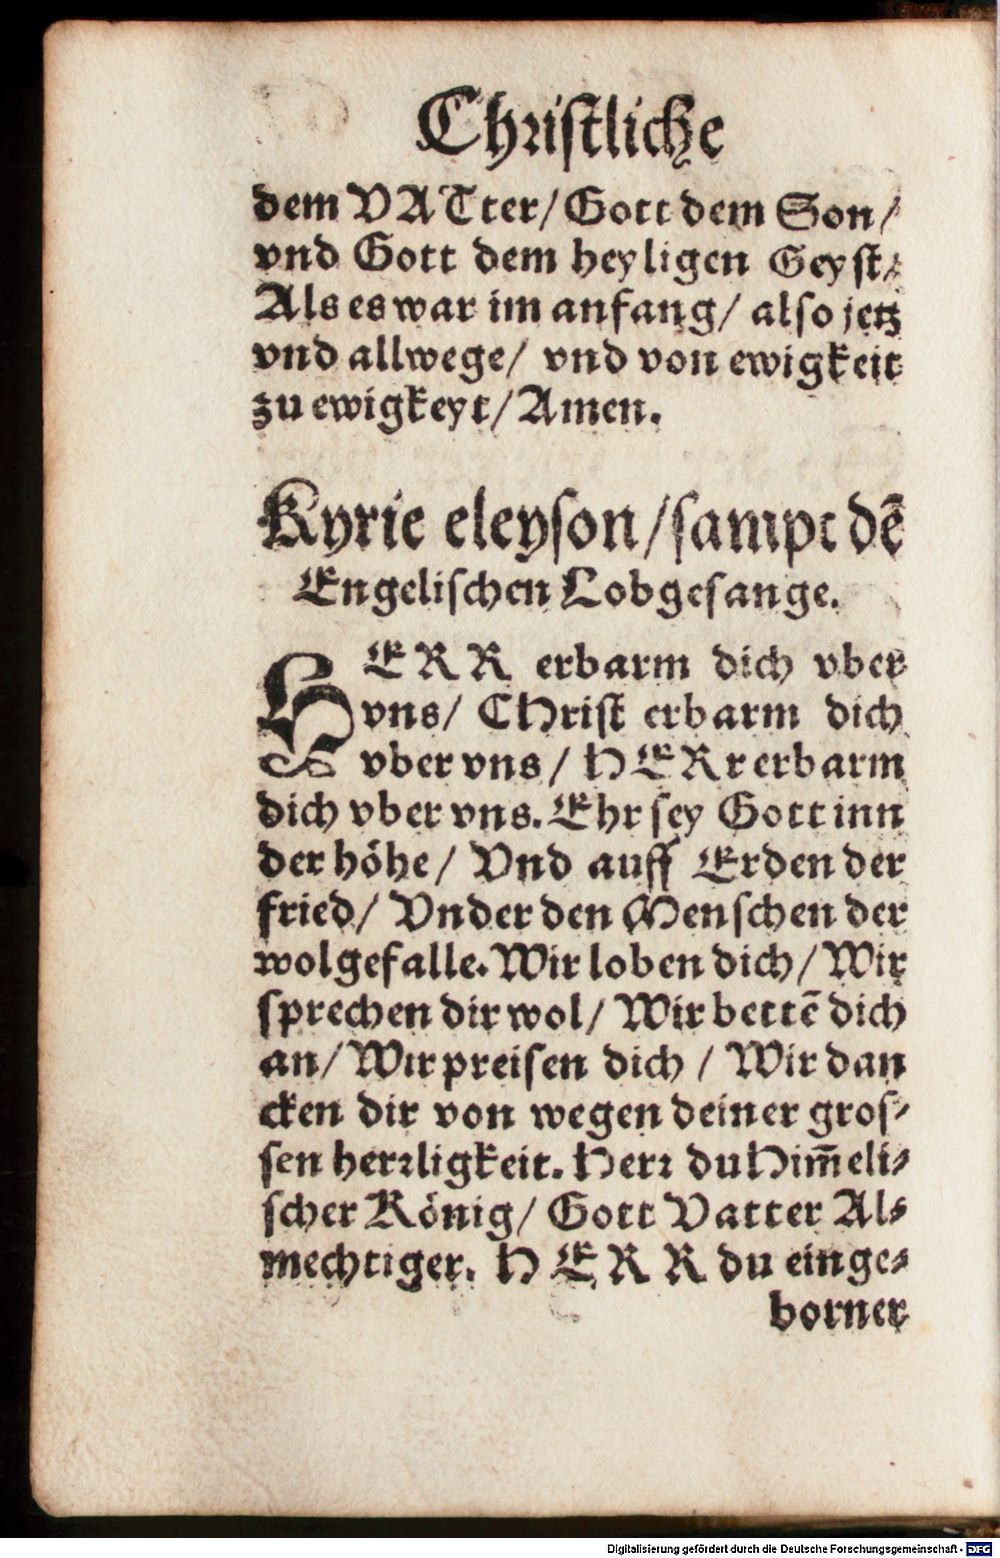 Christliche
dem VATter/ Gott dem Son/
vnd Gott dem heyligen Geyst/
Als es war im anfang/ also jetz
vnd allwege/ vnd von ewigkeit
zu ewigkeyt/ Amen.
Kyrie eleyson/ sampt dē
Engelischen Lobgesange.
HERR erbarm dich vber
vns/ CHrist erbarm dich
vber vns/ HERr erbarm
dich vber vns. Ehr sey Gott inn
der höhe/ Vnd auff Erden der
fried/ Vnder den Menschen der
wolgefalle. Wir loben dich/ Wir
sprechen dir wol/ Wir bettē dich
an/ Wir preisen dich / Wir dan
cken dir von wegen deiner gros-
sen herꝛligkeit. Herꝛ du Him̄eli-
scher König/ Gott Vatter Al-
mechtiger. HERR du einge-
borner
Digitalisierung gefördert durch die Deutsche Forschungsgemeinschaft - DFG